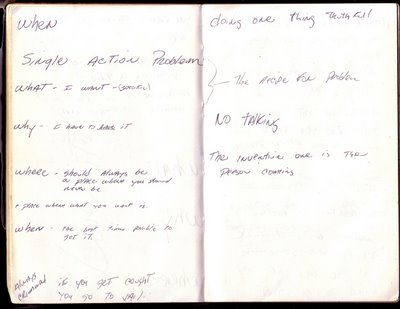 when
Single Action Problem
what - I want - (specific)
why - I have to have it
where - should always be
a place where you should
never be
+ place where what you want is.
when - the best time possible to
get it.
Always
criminal
if you get caught
you go to jail.
doing one thing truthfull
The Recipe for Problem
NO TALKING
The invention one is the
person coming